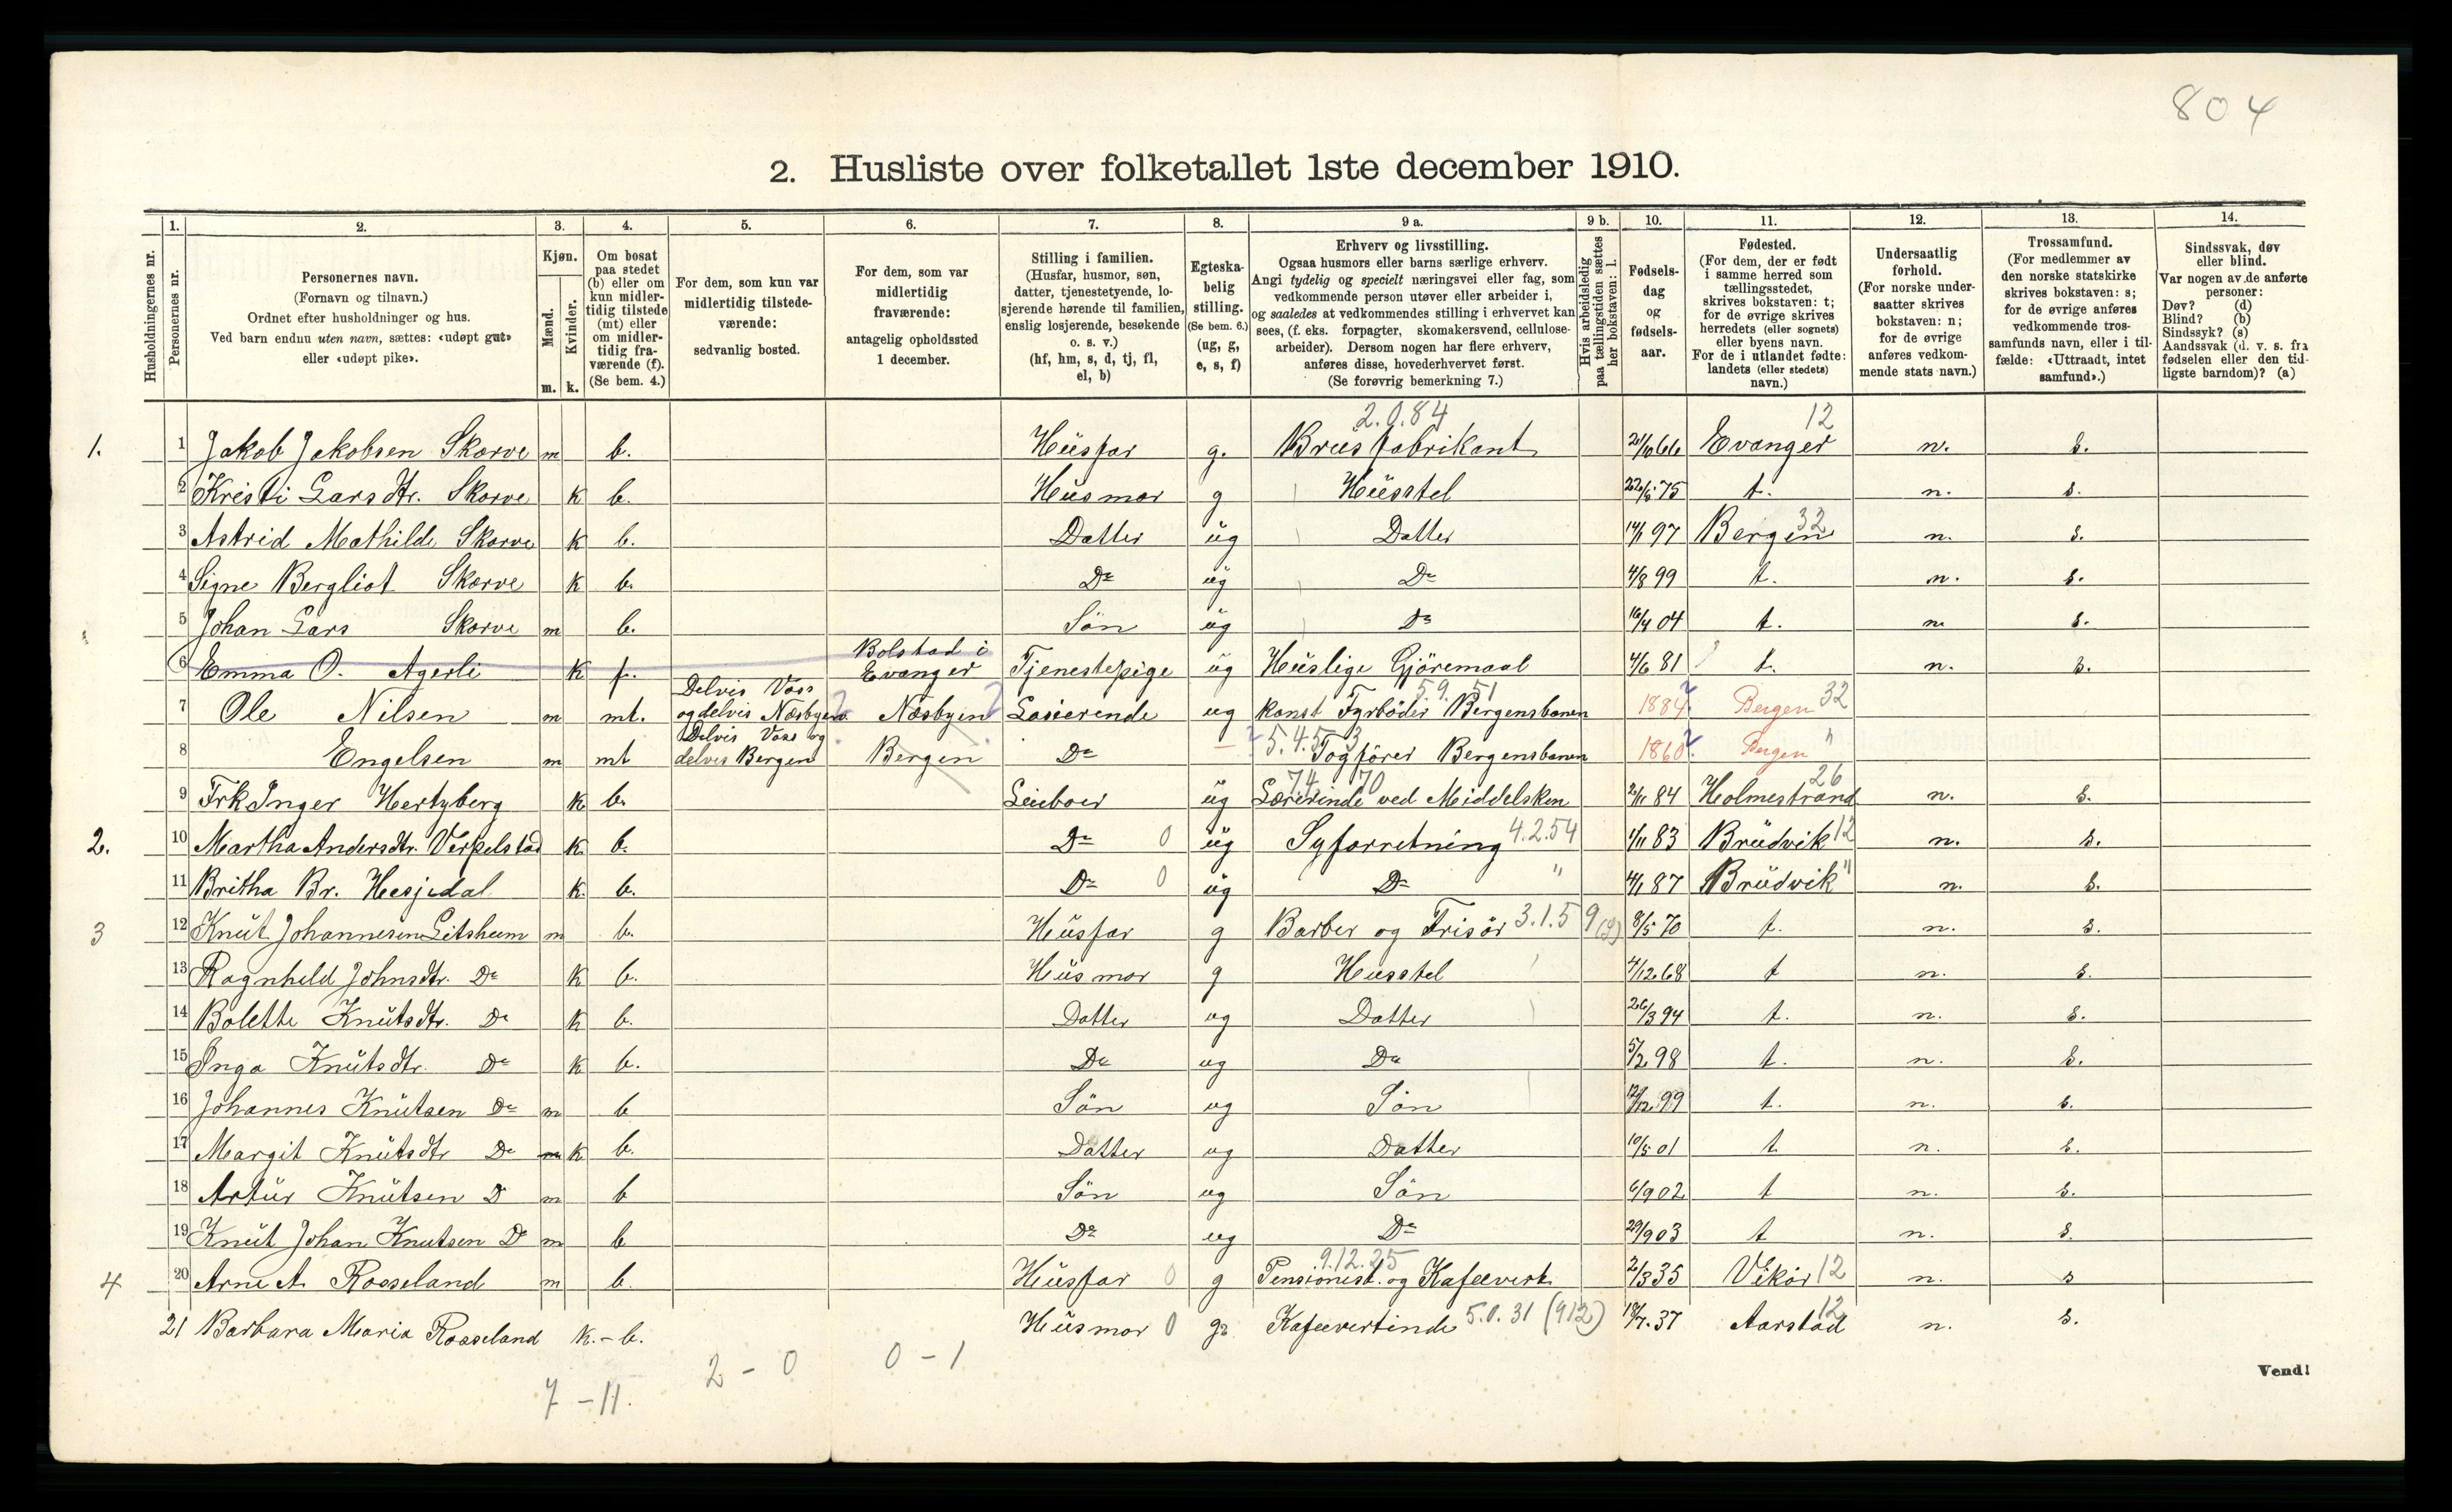 804
2. Husliste over folketallet 1ste december 1910.
Husholdningernes nr.
1. Personernes nr.
2. Personernes navn. (Fornavn og tilnavn.) Ordnet efter husholdninger og hus. Ved barn endnu uten navn, sættes: «udøpt gut» eller «udøpt pike».
3. Kjøn. Mænd. m. Kvinder. k.
4. Om bosat paa stedet (b) eller om kun midlertidig tilstede (mt) eller om midlertidig fraværende (f). (Se bem. 4.)
5. For dem, som kun var midlertidig tilstedeværende: sedvanlig bosted.
6. For dem, som var midlertidig fraværende: antagelig opholdssted 1 december.
7. Stilling i familien. (Husfar, husmor, søn, datter, tjenestetyende, losjerende hørende til familien, enslig losjerende, besøkende o. s. v.) (hf, hm, s, d, tj, fl, el, b)
8. Egteskabelig stilling. (Se bem. 6.) (ug, g, e, s, f)
9 a. Erhverv og livsstilling. Ogsaa husmors eller barns særlige erhverv. Angi tydelig og specielt næringsvei eller fag, som vedkommende person utøver eller arbeider i, og saaledes at vedkommendes stilling i erhvervet kan sees, (f. eks. forpagter, skomakersvend, cellulosearbeider). Dersom nogen har flere erhverv, anføres disse, hovederhvervet først. (Se forøvrig bemerkning 7.)
9 b. Hvis arbeidsledig paa tællingstiden sættes her bokstaven: l.
10. Fødselsdag og fødselsaar.
11. Fødested. (For dem, der er født i samme herred som tællingsstedet, skrives bokstaven: t; for de øvrige skrives herredets (eller sognets) eller byens navn. For de i utlandet fødte: landets (eller stedets) navn.)
12. Undersaatlig forhold. (For norske undersaatter skrives bokstaven: n; for de øvrige anføres vedkommende stats navn.)
13. Trossamfund. (For medlemmer av den norske statskirke skrives bokstaven: s; for de øvrige anføres vedkommende trossamfunds navn, eller i tilfælde: «Uttraadt, intet samfund».)
14. Sindssvak, døv eller blind. Var nogen av de anførte personer: Døv? (d) Blind? (b) Sindssyk? (s) Aandssvak (d. v. s. fra fødselen eller den tidligste barndom)? (a)
2.0.84 12
1. 1 Jakob Jakobsen Skorve m b. Husfar g. Brusfabrikant 20/10 66 Evanger n. s.
2 Kristi Larsdtr. Skorve k b. Husmor g Husstel 22/5 75 t. n. s.
3 Astrid Mathilde Skorve k b. Datter ug Datter 14/1 97 Bergen 32 n. s.
4 Signe Bergliot Skorve k b. Do ug Do 4/8 99 t. n. s.
5 Johan Lars Skorve m b. Søn ug Do 16/4 04 t. n. s.
6 Emma O. Agerli k f. Bolstad i Evanger Tjenestepige ug Huslige Gjöremaal 4/6 81 t. n. s.
7 Ole Nilsen m mt. Delvis Voss og delvis Næsbyen Næsbyen Losierende ug konst Fyrböder Bergensbanen 5.9.51 1884 Bergen 32
8 Engelsen m mt Delvis Voss og delvis Bergen Bergen Do - 5.4.53 Togförer Bergensbanen 1860 Bergen "
9 Frk Inger Hertzberg k b. Leieboer ug Lærerinde ved Middelskon 74.70 2/11 84 Holmestrand 26 n. s.
2. 10 Martha Andersdtr. Verpelstad k b. Do 0 ug Syforretning 4.2.54 1/11 83 Brudvik 12 n. s.
11 Britha Br. Hesjedal k. b. Do 0 ug Do " 4/1 87 Brudvik " n. s.
3 12 Knut Johannesen Gitsheim m b. Husfar g Barber og Frisör 3.1.59 (9) 8/5 70 t. n. s.
13 Ragnhild Johnsdtr. Do k b. Husmor g Husstel 4/12 68 t n. s.
14 Bolette Knutsdtr. Do k b. Datter ug Datter 26/3 94 t. n. s.
15 Inga Knutsdtr. Do k b. Do ug Do 5/2 98 t. n. s.
16 Johannes Knutsen Do m b Søn ug Søn 12/12 99 t. n. s.
17 Margit Knutsdtr Do m k b. Datter ug Datter 10/5 01 t n. s.
18 Artur Knutsen Do m b Søn ug Søn 6/9 02 t n. s.
19 Knut Johan Knutsen Do m b Do ug Do 29/9 03 t n. s.
4 20 Arne A. Rosseland m b. Husfar 0 g Pensionist. og Kafeevert 9.12.25 2/3 35 Vikör 12 n. s
21 Barbara Maria Rosseland k. - b. Husmor 0 g. Kafeevertinde 5.0.31 (912) 18/7. 37 Aarstad 12 n. s.
7 - 11. 2 - 0 0 - 1
Vend!